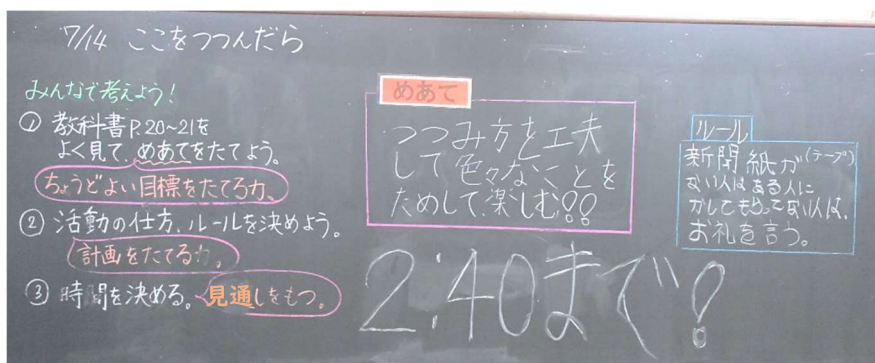 7/14 ここをつつんだら
みんなで考えよう!
① 教科書P.20~21を
よく見て、めあてをたてよう。
ちょうどよい目標をたてる力。
② 活動の仕方、ルールを決めよう。
計画をたてる力。
③ 時間を決める。
見通しをもつ。
めあて
つつみ方を工夫
して色々なことを
ためして、楽しむ!!
2:40まで!
ルール
新聞紙が(テープ)
ない人は ある人に
かしてもらってない人は、
お礼を言う。